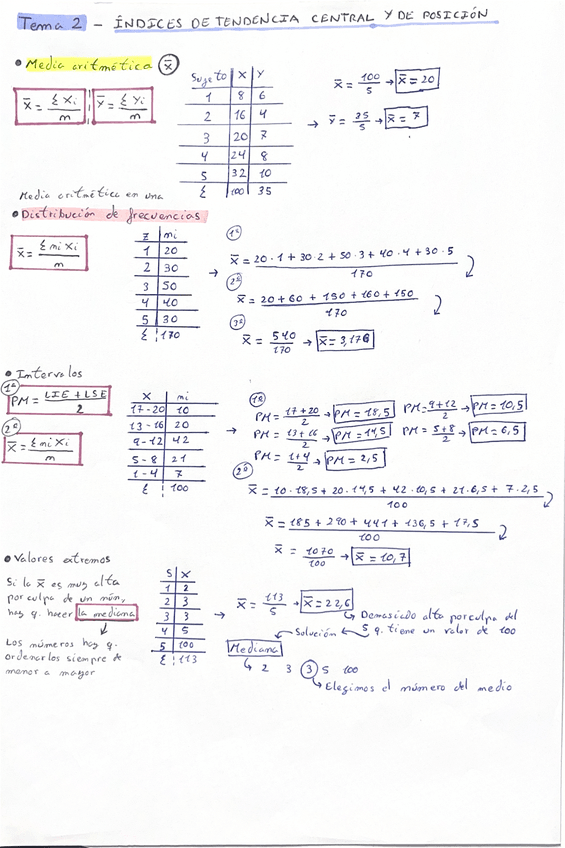 Tema 2 - ÍNDICES DE TENDENCIA CENTRAL Y DE POSICIÓN
• Media aritmética (x̄)
x̄ = Σxi / n
ȳ = Σyi / n
Sujeto X Y
1 8 6
2 16 4
3 20 7
4 24 8
5 32 10
Σ 100 35
x̄ = 100/5 → x̄ = 20
→ ȳ = 35/5 → x̄ = 7
Media aritmética en una
• Distribución de frecuencias
x̄ = Σ ni xi / n
Z ni
1 20
2 30
3 50
4 40
5 30
Σ 170
1º
x̄ = 20·1 + 30·2 + 50·3 + 40·4 + 30·5 / 170
2º
x̄ = 20 + 60 + 150 + 160 + 150 / 170
3º
x̄ = 540/170 → x̄ = 3,176
• Intervalos
1º
PM = LIE + LSE / 2
2º
x̄ = Σ ni xi / n
X ni
17-20 10
13-16 20
9-12 42
5-8 21
1-4 7
Σ 100
1º
PM = 17+20/2 → PM = 18,5
PM = 9+12/2 → PM = 10,5
PM = 13+16/2 → PM = 14,5
PM = 5+8/2 → PM = 6,5
PM = 1+4/2 → PM = 2,5
2º
x̄ = 10·18,5 + 20·14,5 + 42·10,5 + 21·6,5 + 7·2,5 / 100
x̄ = 185 + 290 + 441 + 136,5 + 17,5 / 100
x̄ = 1070/100 → x̄ = 10,7
• Valores extremos
Si la x̄ es muy alta
por culpa de un núm,
hay q. hacer la mediana
Los números hay q.
ordenarlos siempre de
menor a mayor
S X
1 2
2 3
3 3
4 5
5 100
Σ 113
→ x̄ = 113/5 → x̄ = 22,6
Demasiado alta por culpa del
5 q. tiene un valor de 100
Solución
Mediana
2 3 3 5 100
Elegimos el número del medio